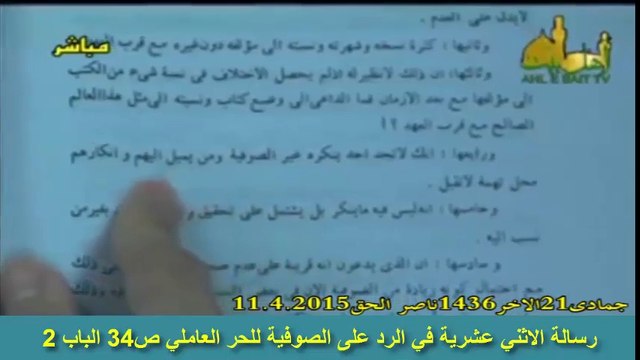 لايدل على العدم .
مباشر
AHL E BAIT TV
وثانيها : كثرة نسخه وشهرته ونسبته الى مؤلفه دون غيره مع قرب
وثالثها: ان ذلك لانظيرله اذلم يحصل الاختلاف فى نسبة شىء من الكتب
الى مؤلفها مع بعد الازمان فما الداعى الى وضع كتاب ونسبته الى مثل هذا العالم
الصالح مع قرب العهد ؟!
ورابعها : انك لاتجد احد ينكره غير الصوفية ومن يميل اليهم وانكارهم
محل تهمة لاتقبل .
وخامسها : انه ليس فيه ماينكر بل يشتمل على تحقيق
نسب اليه .
و سادسها : ان الذى يدعون انه قرينة على عدم
مع احتمال كونه زيادة من الصوفية
جمادى21الاخر1436ناصر الحق11.4.2015
رسالة الاثني عشرية في الرد على الصوفية للحر العاملي ص34 الباب 2